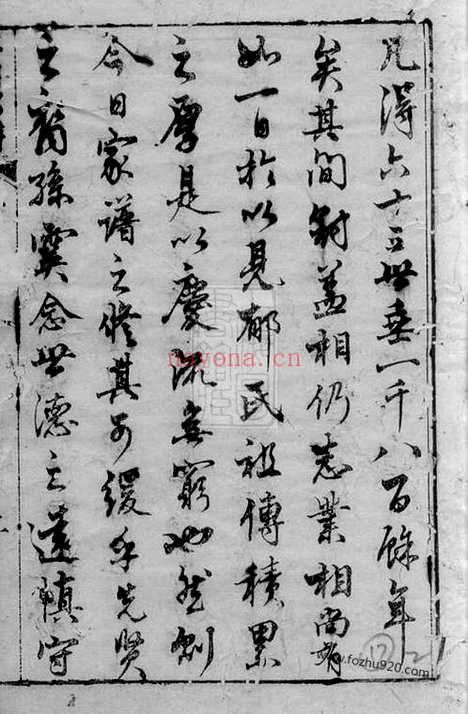 凡得六十三世垂一千八百餘年
矣其間科蓋相仍志業相尚有
如一日於以見郝氏祖傳積累
之厚是以慶流無窮也然則
今日家譜之修其可緩乎先賢
之裔孫實念世德之遠慎守
nayona.cn
www.fozhu920.com